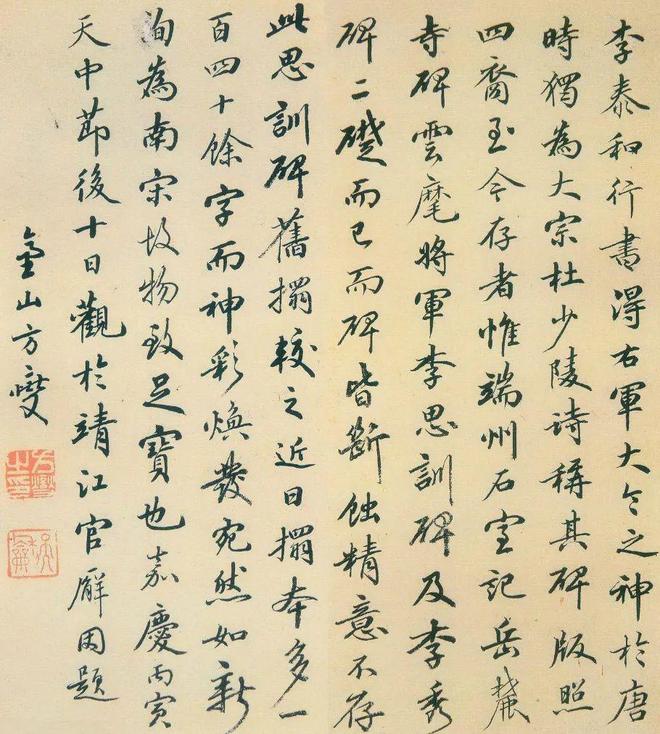 李泰和行書得右軍大令之神於唐
時獨為大宗杜少陵詩稱其碑版照
四裔至今存者惟端州石室記岳麓
寺碑雲麾將軍李思訓碑及李秀
碑二礎而已而碑皆斷蝕精意不存
此思訓碑舊搨較之近日搨本多一
百四十餘字而神彩煥發宛然如新
洵為南宋故物致足寶也嘉慶丙寅
天中節後十日觀於靖江官廨因題
山方燮